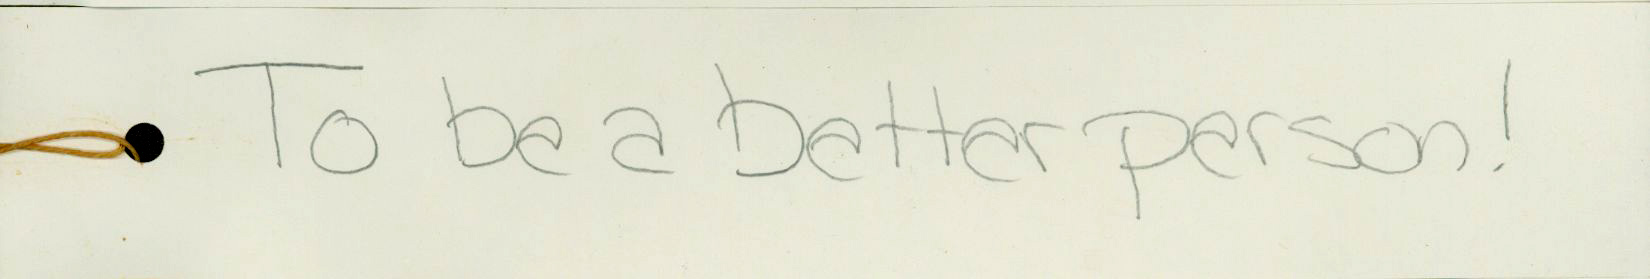 To be a better person!